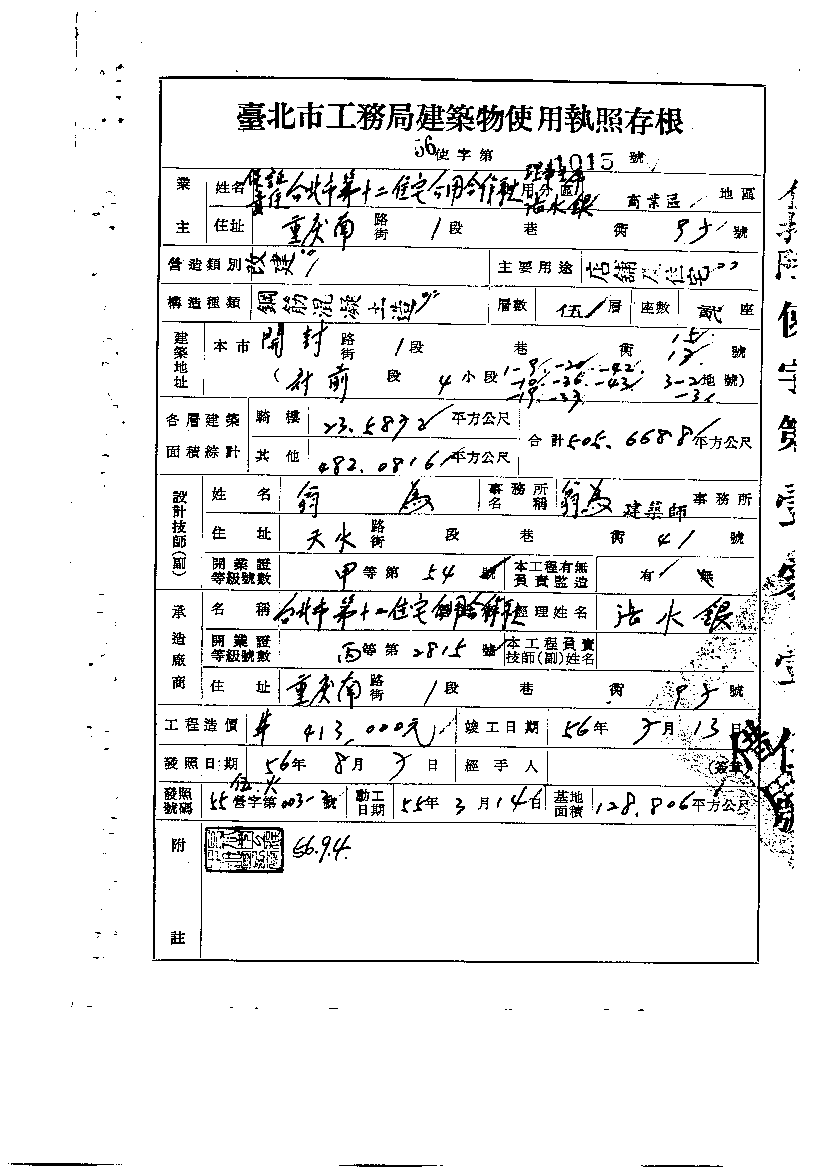 臺北市工務局建築物使用執照存根
56使字第1015號
業主 姓名 保證責任台北市第十二住宅公用合作社 理事主席 水銀 使用分區 商業區 地區
住址 重慶南路街 1段 巷 衖 95號
營造類別 改建 主要用途 店舖及住宅
構造種類 鋼筋混凝土造 層數 伍層 座數 貳座
建築地址 本市 開封路街 1段 巷 衖 15 17號
段 4小段 1-9 -20 -42 3-2地號)
-19 -36 -43 -31
-19 -37
各層建築面積綜計 騎樓 23.5872平方公尺 合計505.6688平方公尺
其他 482.0816平方公尺
設計技師(副) 姓名 翁為 事務所名稱 翁為建築師事務所
住址 天水路街 段 巷 衖 41號
開業證等級號數 甲等第54號 本工程有無負責監造 有 無
承造廠商 名稱 台北市第十二住宅公用合作社 經理姓名 水銀
開業證等級號數 丙等第2815號 本工程負責技師(副)姓名
住址 重慶南路街 1段 巷 衖 95號
工程造價 413,000元 竣工日期 56年5月13日
發照日期 56年8月5日 經手人 (簽章)
發照號碼 55營字第003-號 動工日期 55年3月14日 基地面積 128.806平方公尺
附註 56.9.4.
使字第壹